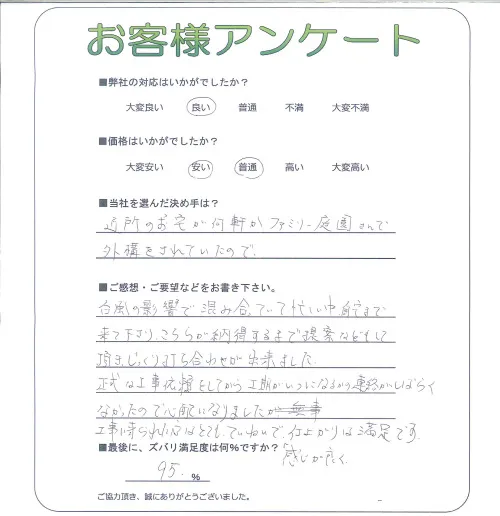 お客様アンケート
■弊社の対応はいかがでしたか？
大変良い 良い 普通 不満 大変不満
■価格はいかがでしたか？
大変安い 安い 普通 高い 大変高い
■当社を選んだ決め手は？
近所のお宅が何軒かファミリー庭園さんで
外構をされていたので。
■ご感想・ご要望などをお書き下さい。
台風の影響で混み合っていて忙しい中、自宅まで
来て下さり、こちらが納得するまで提案などをして
頂き、じっくり打ち合わせが出来ました。
正式な工事依頼をしてから工期がいつになるかの連絡がしばらく
なかったので心配になりましたが
工事に来られた方はとてもていねいで、仕上がりは満足です。
感じが良く、
■最後に、ズバリ満足度は何％ですか？
95. %
ご協力頂き、誠にありがとうございました。